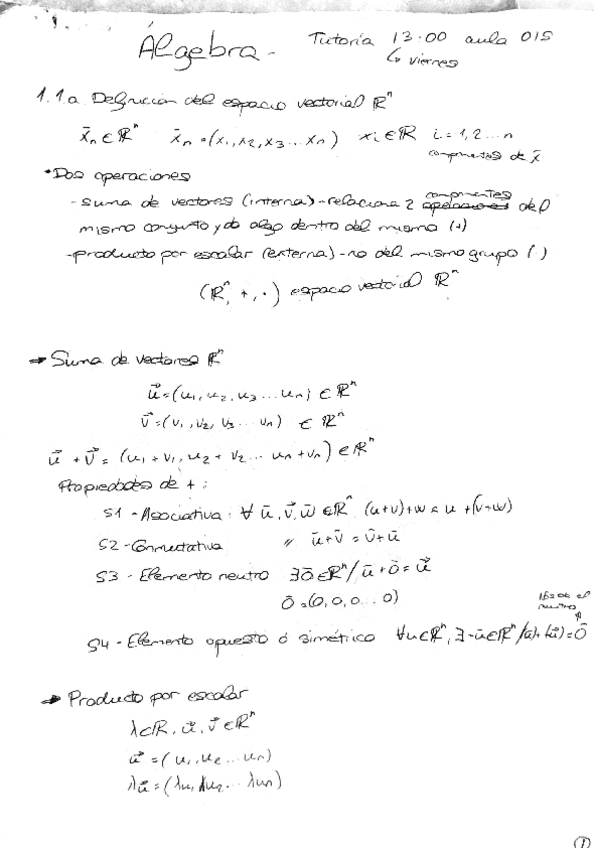 Álgebra -
Tutoria 13:00 aula 015
↳ viernes
1.1a Definicion del espacio vectorial ℝⁿ
x̄ₙ ∈ ℝⁿ x̄ₙ = (x₁, x₂, x₃ ... xₙ) xᵢ ∈ ℝ i = 1, 2 ... n
componentes de x̄
• Dos operaciones
- suma de vectores (interna) - relaciona 2 componentes del
mismo conjunto y da algo dentro del mismo (+)
- producto por escalar (externa) - no del mismo grupo (·)
(ℝⁿ, +, ·) espacio vectorial ℝⁿ
→ Suma de vectores ℝⁿ
u⃗ = (u₁, u₂, u₃ ... uₙ) ∈ ℝⁿ
v⃗ = (v₁, v₂, v₃ ... vₙ) ∈ ℝⁿ
u⃗ + v⃗ = (u₁ + v₁, u₂ + v₂ ... uₙ + vₙ) ∈ ℝⁿ
Propiedades de + :
S1 - Asociativa : ∀ ū, v̄, w̄ ∈ ℝⁿ (u+v)+w = u+(v+w)
S2 - Conmutativa " ū+v̄ = v̄+ū
S3 - Elemento neutro ∃ō∈ℝⁿ / ū+ō = u⃗
ō = (0, 0, 0 ... 0)
el
neutro
S4 - Elemento opuesto ó simético ∀u∈ℝⁿ, ∃-ū∈ℝⁿ/(ū)+(-ū)=ō
→ Producto por escalar
λ∈ℝ, u⃗, v⃗ ∈ℝⁿ
u⃗ = (u₁, u₂ ... uₙ)
λu⃗ = (λu₁, λu₂ ... λuₙ)
1